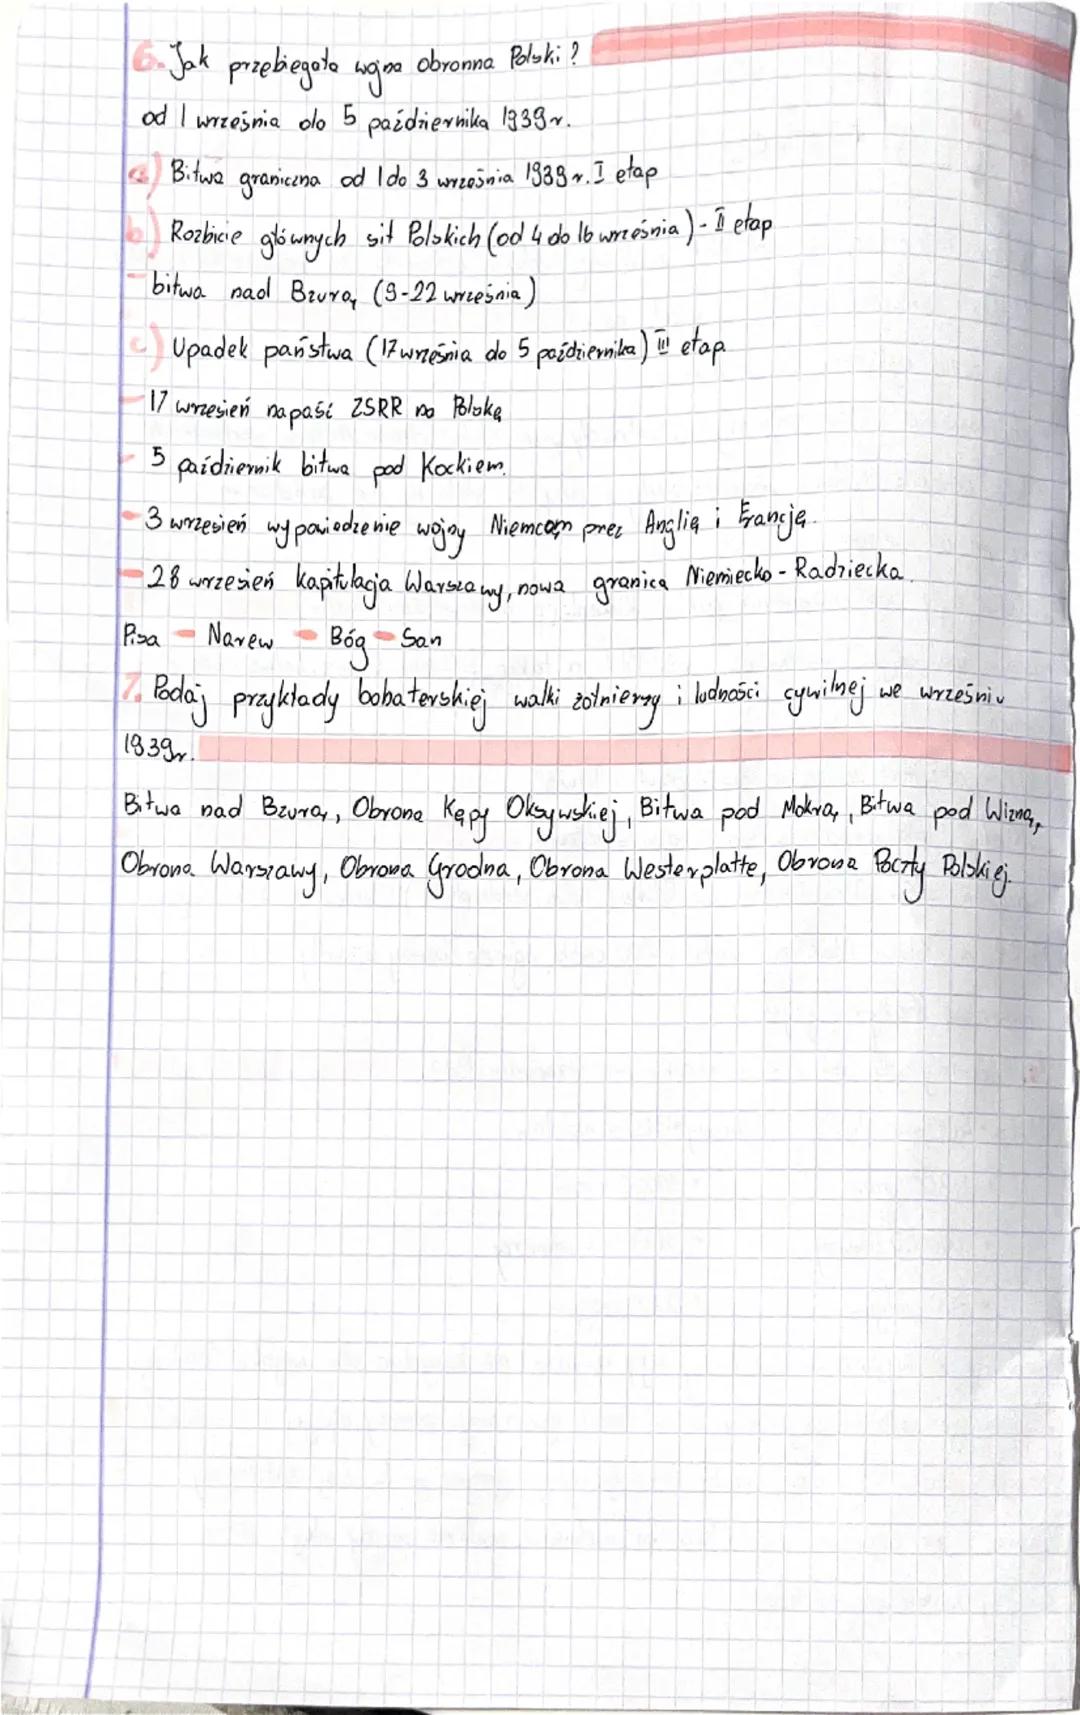 6. Jak przebiegała wojna obronna Polski?
od 1 września do 5 października 1939r.
a) Bitwa graniczna od 1 do 3 września 1939r. I etap
b) Rozbicie głównych sił Polskich (od 4 do 16 września) - II etap
- bitwa nad Bzurą (9-22 września)
c) Upadek państwa (17 września do 5 października) III etap
- 17 wrzesień napaść ZSRR na Polskę
- 5 październik bitwa pod Kockiem.
- 3 wrzesień wypowiedzenie wojny Niemcom prez Anglię i Francję.
- 28 wrzesień kapitulacja Warszawy, nowa granica Niemiecko - Radziecka.
Pisa - Narew - Bóg - San
7. Podaj przykłady bohaterskiej walki żołnierzy i ludności cywilnej we wrześniu
1939r.
Bitwa nad Bzurą, Obrona Kępy Oksywskiej, Bitwa pod Mokrą, Bitwa pod Wizną,
Obrona Warszawy, Obrona Grodna, Obrona Westerplatte, Obrona Poczty Polskiej.